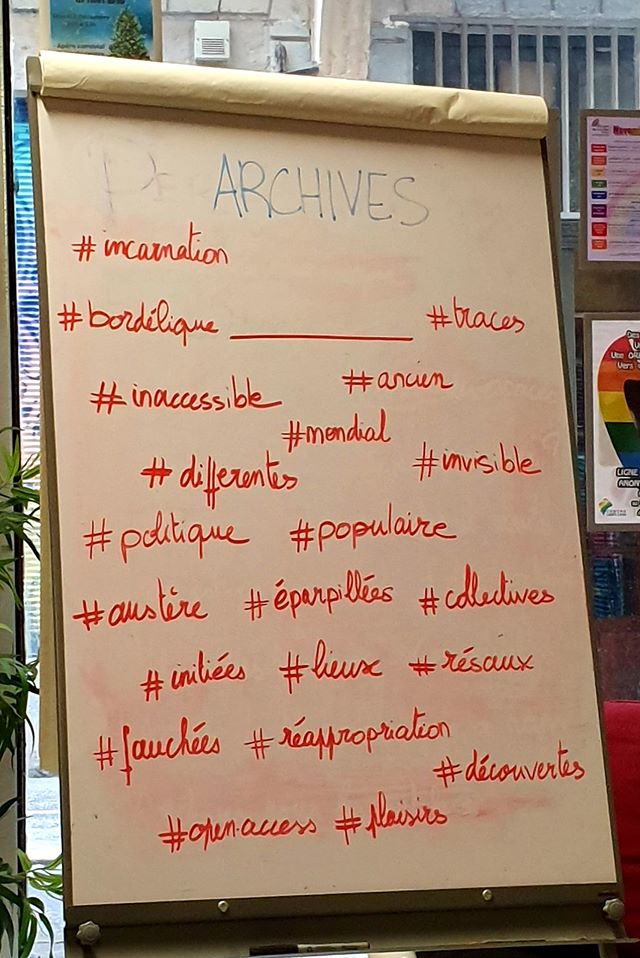 ARCHIVES
#incarnation
#bordélique ________ #traces
#inaccessible #ancien
#mondial
#differentes #invisible
#politique #populaire
#austère #éparpillées #collectives
#initiées #lieux #résaux
#fauchées #réappropriation
#découvertes
#open-access #plaisirs